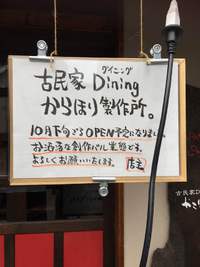 ダイニング
古民家 Dining
からほり製作所。
10月下旬ごろOPEN予定になりました。
お洒落な創作バル業態です。
よろしくお願いいたします。
店主
古民家